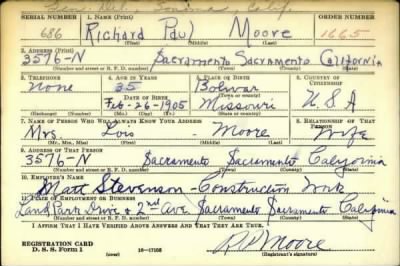 Gen. Del., Sonoma, Calif.
SERIAL NUMBER 1. NAME (Print) ORDER NUMBER
686 Richard Paul Moore 1665
(First) (Middle) (Last)
2. ADDRESS (Print)
3576-N Sacramento Sacramento California
(Number and street or R. F. D. number) (Town) (County) (State)
3. TELEPHONE 4. AGE IN YEARS 5. PLACE OF BIRTH 6. COUNTRY OF CITIZENSHIP
None 35 Bolivar
DATE OF BIRTH (Town or county)
Feb-26-1905 Missouri U.S.A
(Exchange) (No.) (Mo.) (Day) (Yr.) (State or country)
7. NAME OF PERSON WHO WILL ALWAYS KNOW YOUR ADDRESS 8. RELATIONSHIP OF THAT PERSON
Mrs. Lois Moore Wife
(Mr., Mrs., Miss) (First) (Middle) (Last)
9. ADDRESS OF THAT PERSON
3576-N Sacramento Sacramento California
(Number and street or R. F. D. number) (Town) (County) (State)
10. EMPLOYER'S NAME
Matt Stevenson-Construction Work
11. PLACE OF EMPLOYMENT OR BUSINESS
Land Park Drive & 2nd Ave. Sacramento Sacramento California
(Number and street or R. F. D. number) (Town) (County) (State)
I AFFIRM THAT I HAVE VERIFIED ABOVE ANSWERS AND THAT THEY ARE TRUE.
REGISTRATION CARD
D. S. S. Form 1 (over) 16-17105 R P Moore
(Registrant's signature)